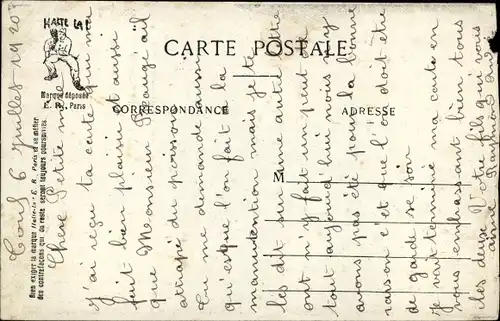 HALTE LA !
Marque déposée
E. R. Paris
CARTE POSTALE
CORRESPONDANCE
ADRESSE
M
Bien exiger la marque "Halte-là" E. R. Paris et se méfier
des contrefaçons qui du reste seront toujours poursuivies.
6 Juillet 1920
Chère Petite
J'ai reçu ta carte qui ma
fait bien plaisir et aussi
que Monsieur
attrapé du poisson
tu me demande aussi
qu'est que l'on fait la
manutention mais je te
les dit sur une autre lettre
ont y fait un peut de
tout aujourd'hui nous ny
avons pas été pour la bonne
raison c'et que l'on doit être
de garde se soir
Je vait terminé ma carte en
vous embrassant bien tous
les deux Votre fils qui vous
aime